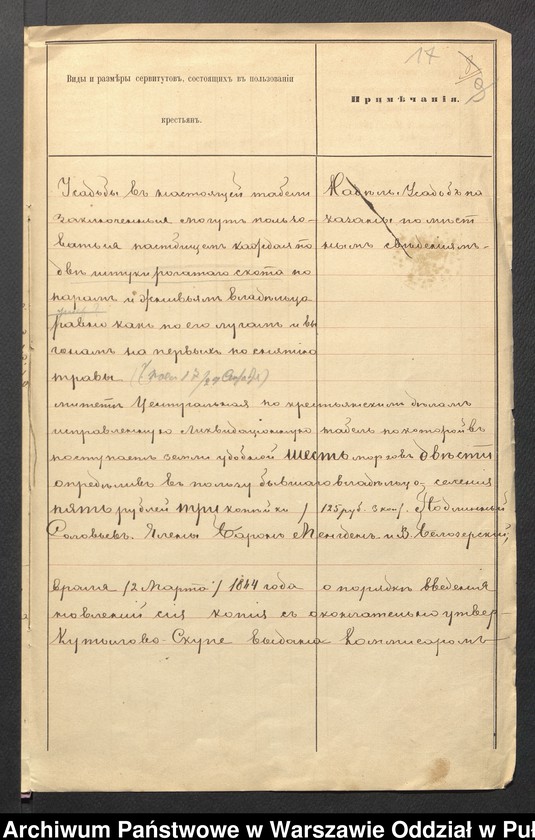 17
8
9
Виды и размѣры сервитутовъ, состоящихъ въ пользованіи
крестьянъ.
Примѣчанія.
Усадьбы въ настоящей табели
заключенныя могутъ пользо-
ваться пастбищемъ каждая по
двѣ штуки рогатаго скота по
парамъ и жнивьямъ владѣльца
равно какъ по его лугамъ и вы
гонамъ на первыхъ по снятіи
травы
Надѣлъ усадьбъ по
казанъ по мѣст
нымъ свѣденіямъ.
митетъ Центральная по крестьянскимъ дѣламъ
исправленную ликвидаціонную табель по которой въ
поступаетъ земли удобной шесть морговъ двѣсти
опредѣливъ въ пользу бывшаго владѣльца селенія
пять рублей три копѣйки / 125 руб. 3 коп/. Подлинный
Соловьевъ. Члены Баронъ Менгденъ и В Белозерский,
враля /2 Марта/ 1864 года о порядкѣ введенія
новленій сія копія съ окончательно утвер-
Кутылово-Скупе выдана Коммисаромъ
Archiwum Państwowe w Warszawie Oddział w Puł